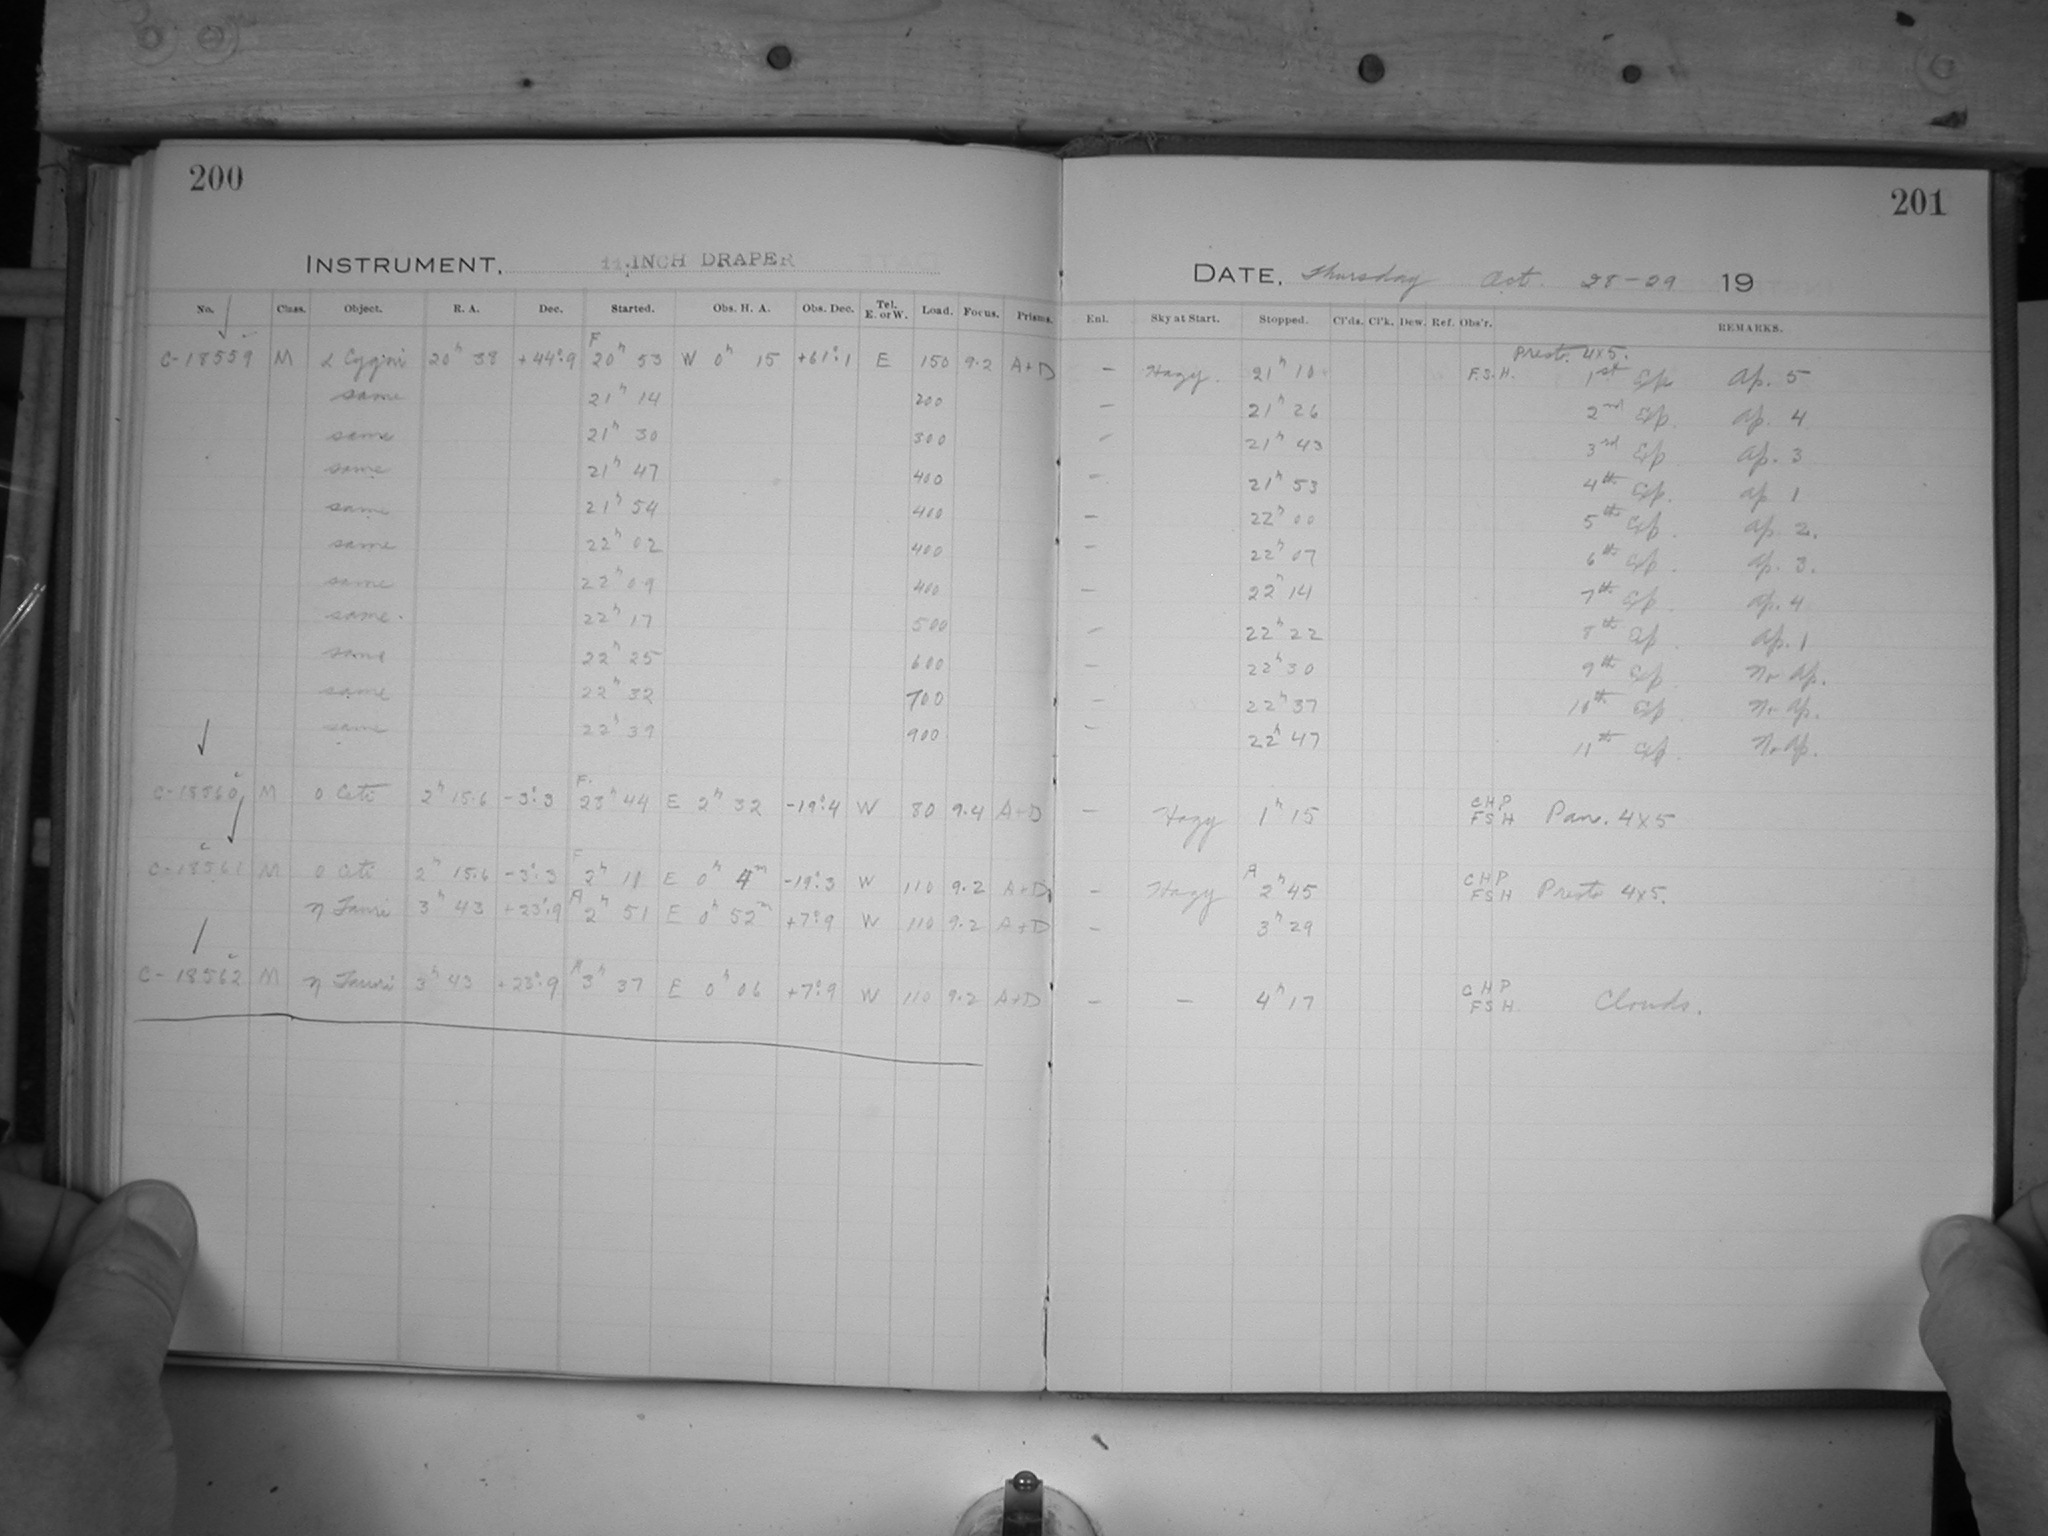 200
INSTRUMENT, 11.INCH DRAPER
No. Class. Object. R. A. Dec. Started. Obs. H. A. Obs. Dec. Tel. E. or W. Load. Focus. Prisms.
F
C-18559 M α Cygni 20h 38 +44°.9 20h 53 W 0h 15 +61°.1 E 150 9.2 A+D
same 21h 14 200
same 21h 30 300
same 21h 47 400
same 21h 54 400
same 22h 02 400
same 22h 09 400
same. 22h 17 500
same 22h 25 600
same 22h 32 700
same 22h 39 900
F.
C-18560 M o Ceti 2h 15.6 -3°.3 23h 44 E 2h 32 -19°.4 W 80 9.4 A+D
F
C-18561 M o Ceti 2h 15.6 -3°.3 2h 11 E 0h 4m -19°.3 W 110 9.2 A+D
A
η Tauri 3h 43 +23°.9 2h 51 E 0h 52m +7°.9 W 110 9.2 A+D
A
C-18562 M η Tauri 3h 43 +23°.9 3h 37 E 0h 06 +7°.9 W 110 9.2 A+D
201
DATE, Thursday Oct. 28-29 19
Enl. Sky at Start. Stopped. Cl'ds. Cl'k. Dew. Ref. Obs'r. REMARKS.
Presto. 4x5.
- Hazy. 21h 10 F.S.H. 1st Exp Ap. 5
- 21h 26 2nd Exp. Ap. 4
- 21h 43 3rd Exp. Ap. 3
- 21h 53 4th Exp. Ap. 1
- 22h 00 5th Exp. Ap. 2.
- 22h 07 6th Exp. Ap. 3.
- 22h 14 7th Exp. Ap. 4
- 22h 22 8th Exp. Ap. 1
- 22h 30 9th Exp. No Ap.
- 22h 37 10th Exp. No Ap.
- 22h 47 11th Exp. No Ap.
- Hazy 1h 15 CHP FSH Pan. 4x5
A
- Hazy 2h 45 CHP FSH Presto 4x5.
- 3h 29
- - 4h 17 CHP FSH. Clouds.